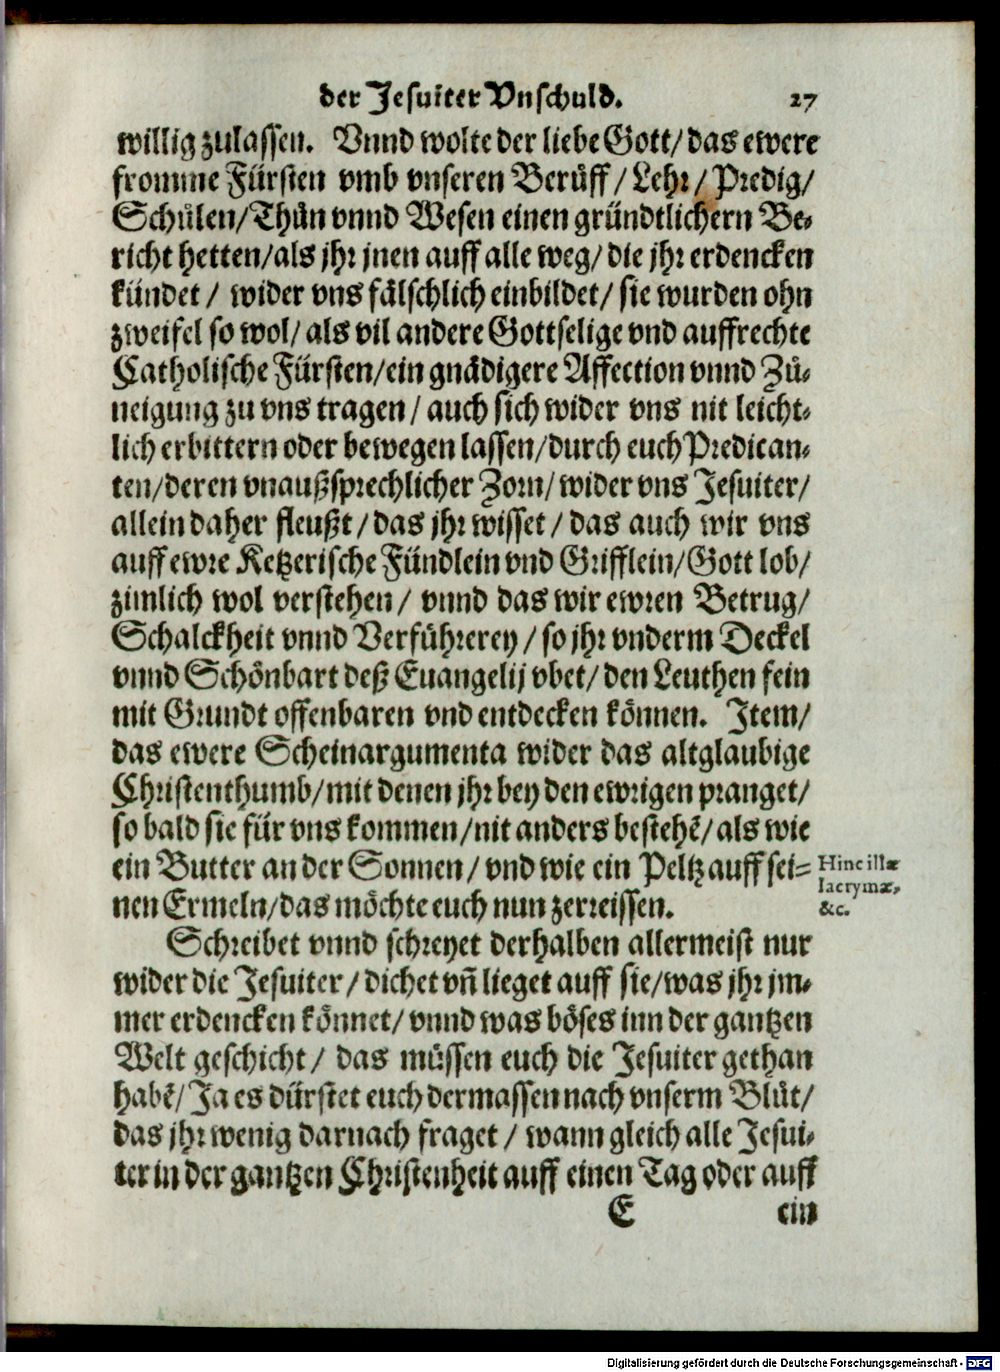 der Jesuiter Vnschuld. 27
willig zulassen. Vnnd wolte der liebe Gott/ das ewere
fromme Fürsten vmb vnseren Berůff/ Lehr/ Predig/
Schůlen/ Thůn vnnd Wesen einen gründtlichern Be-
richt hetten/ als jhr jnen auff alle weg/ die jhr erdencken
kündet/ wider vns fälschlich einbildet/ sie wurden ohn
zweifel so wol/ als vil andere Gottselige vnd auffrechte
Catholische Fürsten/ ein gnädigere Affection vnnd Zů-
neigung zu vns tragen/ auch sich wider vns nit leicht-
lich erbittern oder bewegen lassen/ durch euch Predican-
ten/ deren vnaußsprechlicher Zorn/ wider vns Jesuiter/
allein daher fleußt/ das jhr wisset/ das auch wir vns
auff ewre Ketzerische Fündlein vnd Grifflein/ Gott lob/
zimlich wol verstehen/ vnnd das wir ewren Betrug/
Schalckheit vnnd Verführerey/ so jhr vnderm Deckel
vnnd Schönbart deß Euangelij vbet/ den Leuthen fein
mit Grundt offenbaren vnd entdecken können. Item/
das ewere Scheinargumenta wider das altglaubige
Christenthumb/ mit denen jhr bey den ewrigen pranget/
so bald sie für vns kommen/ nit anders bestehē/ als wie
ein Butter an der Sonnen/ vnd wie ein Peltz auff sei-
nen Ermeln/ das möchte euch nun zerreissen.
Hinc illæ
lacrymæ,
&c.
Schreibet vnnd schreyet derhalben allermeist nur
wider die Jesuiter/ dichet vñ lieget auff sie/ was jhr jm-
mer erdencken könnet/ vnnd was böses inn der gantzen
Welt geschicht/ das müssen euch die Jesuiter gethan
habē/ Ja es dürstet euch dermassen nach vnserm Blůt/
das jhr wenig darnach fraget/ wann gleich alle Jesui-
ter in der gantzen Christenheit auff einen Tag oder auff
E ein
Digitalisierung gefördert durch die Deutsche Forschungsgemeinschaft - DFG